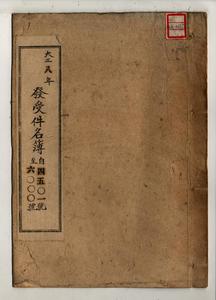 大正八年
發受件名簿
自四五〇一號
至六〇〇〇號